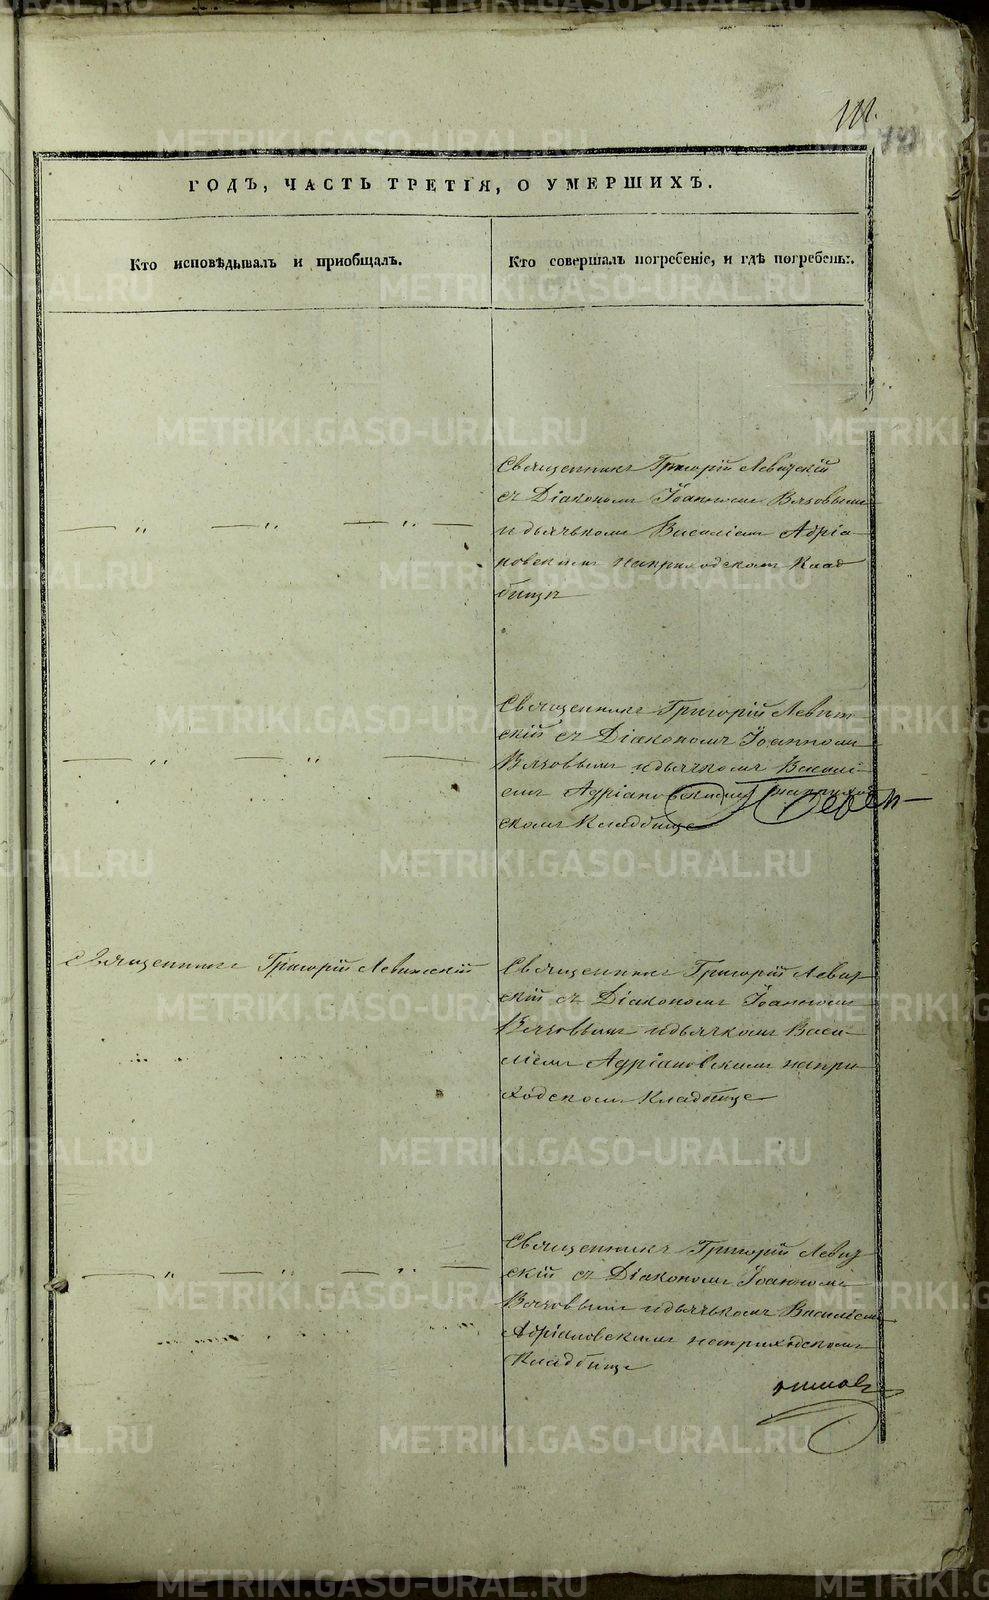 111.
ГОДЪ, ЧАСТЬ ТРЕТІЯ, О УМЕРШИХЪ.
Кто исповѣдывалъ и приобщалъ.
Кто совершалъ погребеніе, и гдѣ погребены.
Священникъ Григорій Левицкій
съ Діакономъ Іоанномъ Вязовымъ
и дьячькомъ Василіемъ Адріа-
новскимъ на приходскомъ Клад
бищѣ
Священникъ Григорій Левит-
скій съ Діакономъ Іоанномъ
Вязовымъ и дьячкомъ Васалі-
емъ Адріановскимъ на приход
скомъ Кладбище
Священникъ Григорій Левитскій
Священникъ Григорій Левит
скій съ Діакономъ Іоанномъ
Вязовымъ и дьячкомъ Васи-
ліемъ Адріановскимъ на при
ходскомъ Кладбище
Священникъ Григорій Левит
скій съ Діакономъ Іоанномъ
Вязовымъ и дьячькомъ Василіемъ
Адріановскимъ на приходскомъ
Кладбище
METRIKI.GASO-URAL.RU